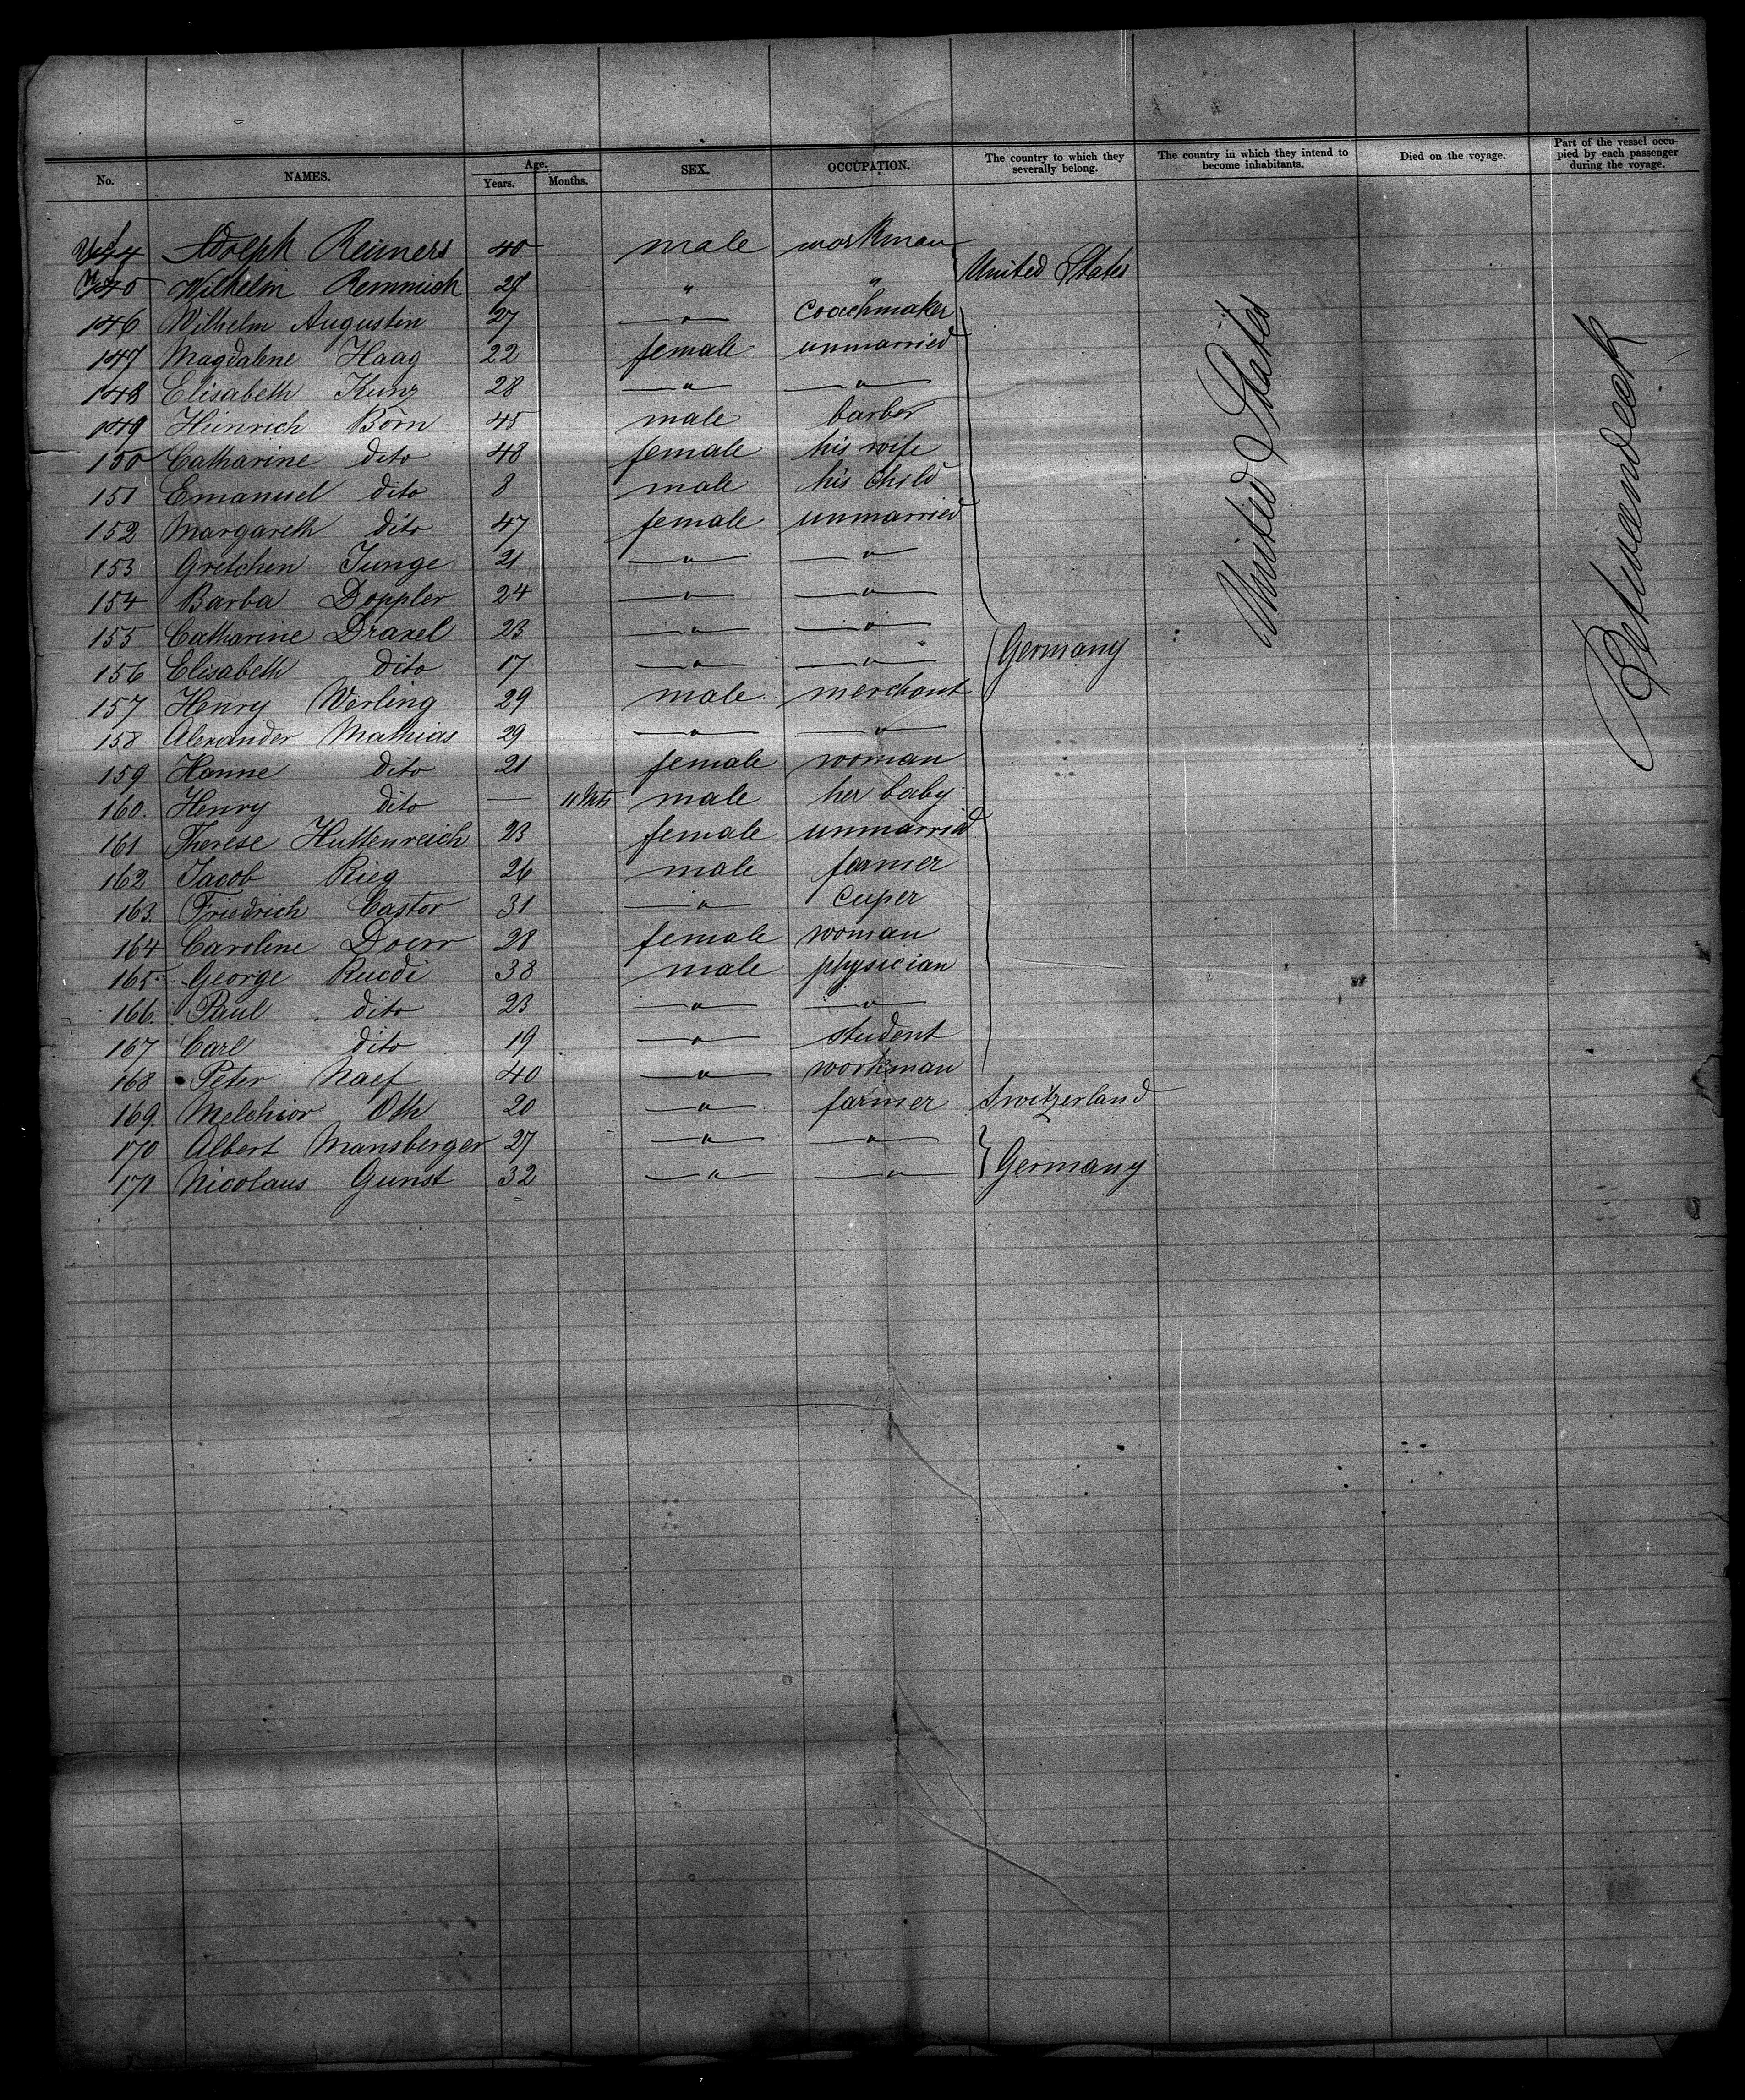 No. NAMES. Age. Years. Months. SEX. OCCUPATION. The country to which they severally belong. The country in which they intend to become inhabitants. Died on the voyage. Part of the vessel occupied by each passenger during the voyage.
144 Adolph Reimers 40 male workman
United States
145 Wilhelm Remmich 28 " "
146 Wilhelm Augustin 27 " coachmaker
147 Magdalene Haag 22 female unmarried
148 Elisabeth Kunz 28 " "
149 Heinrich Börn 45 male barber
150 Catharine dito 48 female his wife
151 Emanuel dito 8 male his child
152 Margareth dito 47 female unmarried
153 Gretchen Junge 21 " "
154 Barba Doppler 24 " "
155 Catharine Draxel 23 " "
156 Elisabeth dito 17 " " Germany
157 Henry Werling 29 male merchant
158 Alexander Mathias 29 " "
159 Hanne dito 21 female woman
160. Henry dito — 11 Mts male her baby
161 Therese Huttenreich 23 female unmarried
162 Jacob Rieg 26 male farmer
163. Friedrich Castor 31 " cuper
164 Caroline Doerr 28 female woman
165. George Ruedi 38 male physician
166. Paul dito 23 " "
167 Carl dito 19 " student
168 Peter Naef 40 " workman
169. Melchior Oth 20 " farmer Switzerland
170 Albert Mansberger 27 " "
171 Nicolaus Gunst 32 " " Germany
United States
Betweendeck